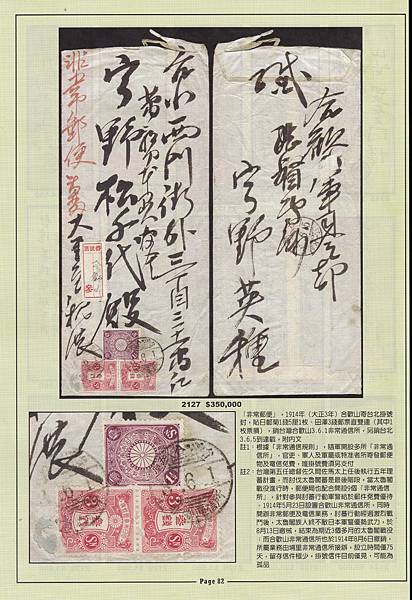 台北西門街外三百三十番戶
宇野松千代殿
非常郵便
大至急親展
緘
宇野英種
2127 $350,000
「非常郵便」,1914年(大正3年)合歡山寄台北掛號
封,貼日郵菊1錢5厘1枚、田澤3錢郵票直雙連(其中1
枚票損),銷台灣合歡山3.6.1非常通信所,另銷台北
3.6.5到達戳,附內文
註1:根據「非常通信規則」,隨軍開設多所「非常通
信所」,官吏、軍人及軍屬或特准者所寄發郵便
物及電信免費,唯掛號費須另支付
註2:台灣第五任總督佐久間佐馬太上任後執行五年理
蕃計畫,而討伐太魯閣蕃是最後階段,當太魯閣
戰役進行時,郵便局也配合開設2個「非常通信
所」,針對參與討蕃行動軍警給於郵件免費優待
。1914年5月23日設置合歡山非常通信所,同時
開辦非常郵便及電信業務,討蕃行動經過激烈戰
鬥後,太魯閣族人終不敵日本軍警優勢武力,於
8月13日繳械,結束為期近3個多月的太魯閣戰役
;而合歡山非常通信所也於1914年8月6日撤銷,
所屬業務由埔里非常通信所接辦,設立時間僅75
天,留存信件極少,掛號信件目前僅見,可能為
孤品
Page 82